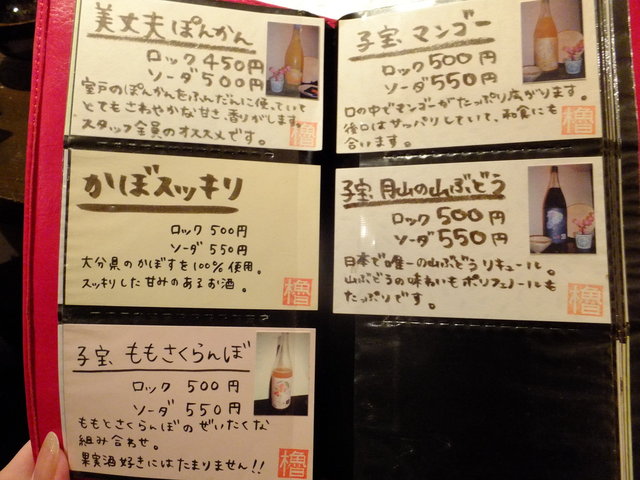 美丈夫ぽんかん
ロック 450円
ソーダ 500円
室戸のぽんかんをふんだんに使っていて
とてもさわやかな甘さ、香りがします。
スタッフ全員のオススメです。
櫓
かぼスッキリ
ロック 500円
ソーダ 550円
大分県のかぼすを100%使用。
スッキリした甘みのあるお酒。
櫓
子宝 ももさくらんぼ
ロック 500円
ソーダ 550円
ももとさくらんぼのぜいたくな
組み合わせ。
果実酒好きにはたまりません!!
櫓
子宝 マンゴー
ロック 500円
ソーダ 550円
口の中でマンゴーがたっぷり広がります。
後口はサッパリしていて、和食にも
合います。
櫓
子宝 月山の山ぶどう
ロック 500円
ソーダ 550円
日本で唯一の山ぶどうリキュール。
山ぶどうの味わいもポリフェノールも
たっぷりです。
櫓